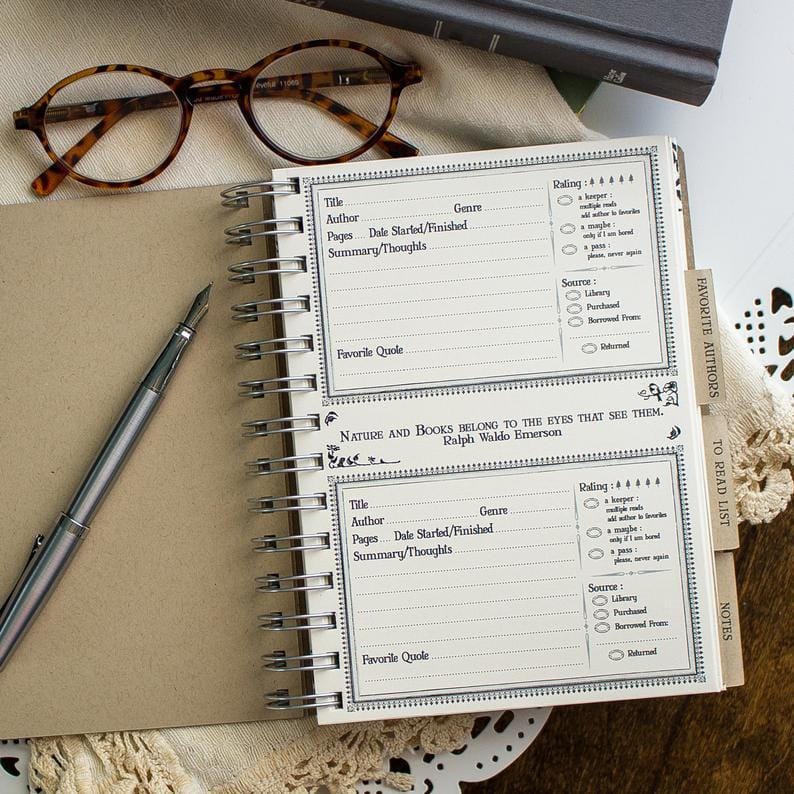 11065
Title
Author Genre
Pages Date Started/Finished
Summary/Thoughts
Favorite Quote
Rating :
a keeper :
multiple reads
add author to favorites
a maybe :
only if I am bored
a pass :
please, never again
Source :
Library
Purchased
Borrowed From:
Returned
NATURE AND BOOKS BELONG TO THE EYES THAT SEE THEM.
Ralph Waldo Emerson
Title
Author Genre
Pages Date Started/Finished
Summary/Thoughts
Favorite Quote
Rating :
a keeper :
multiple reads
add author to favorites
a maybe :
only if I am bored
a pass :
please, never again
Source :
Library
Purchased
Borrowed From:
Returned
FAVORITE AUTHORS
TO READ LIST
NOTES